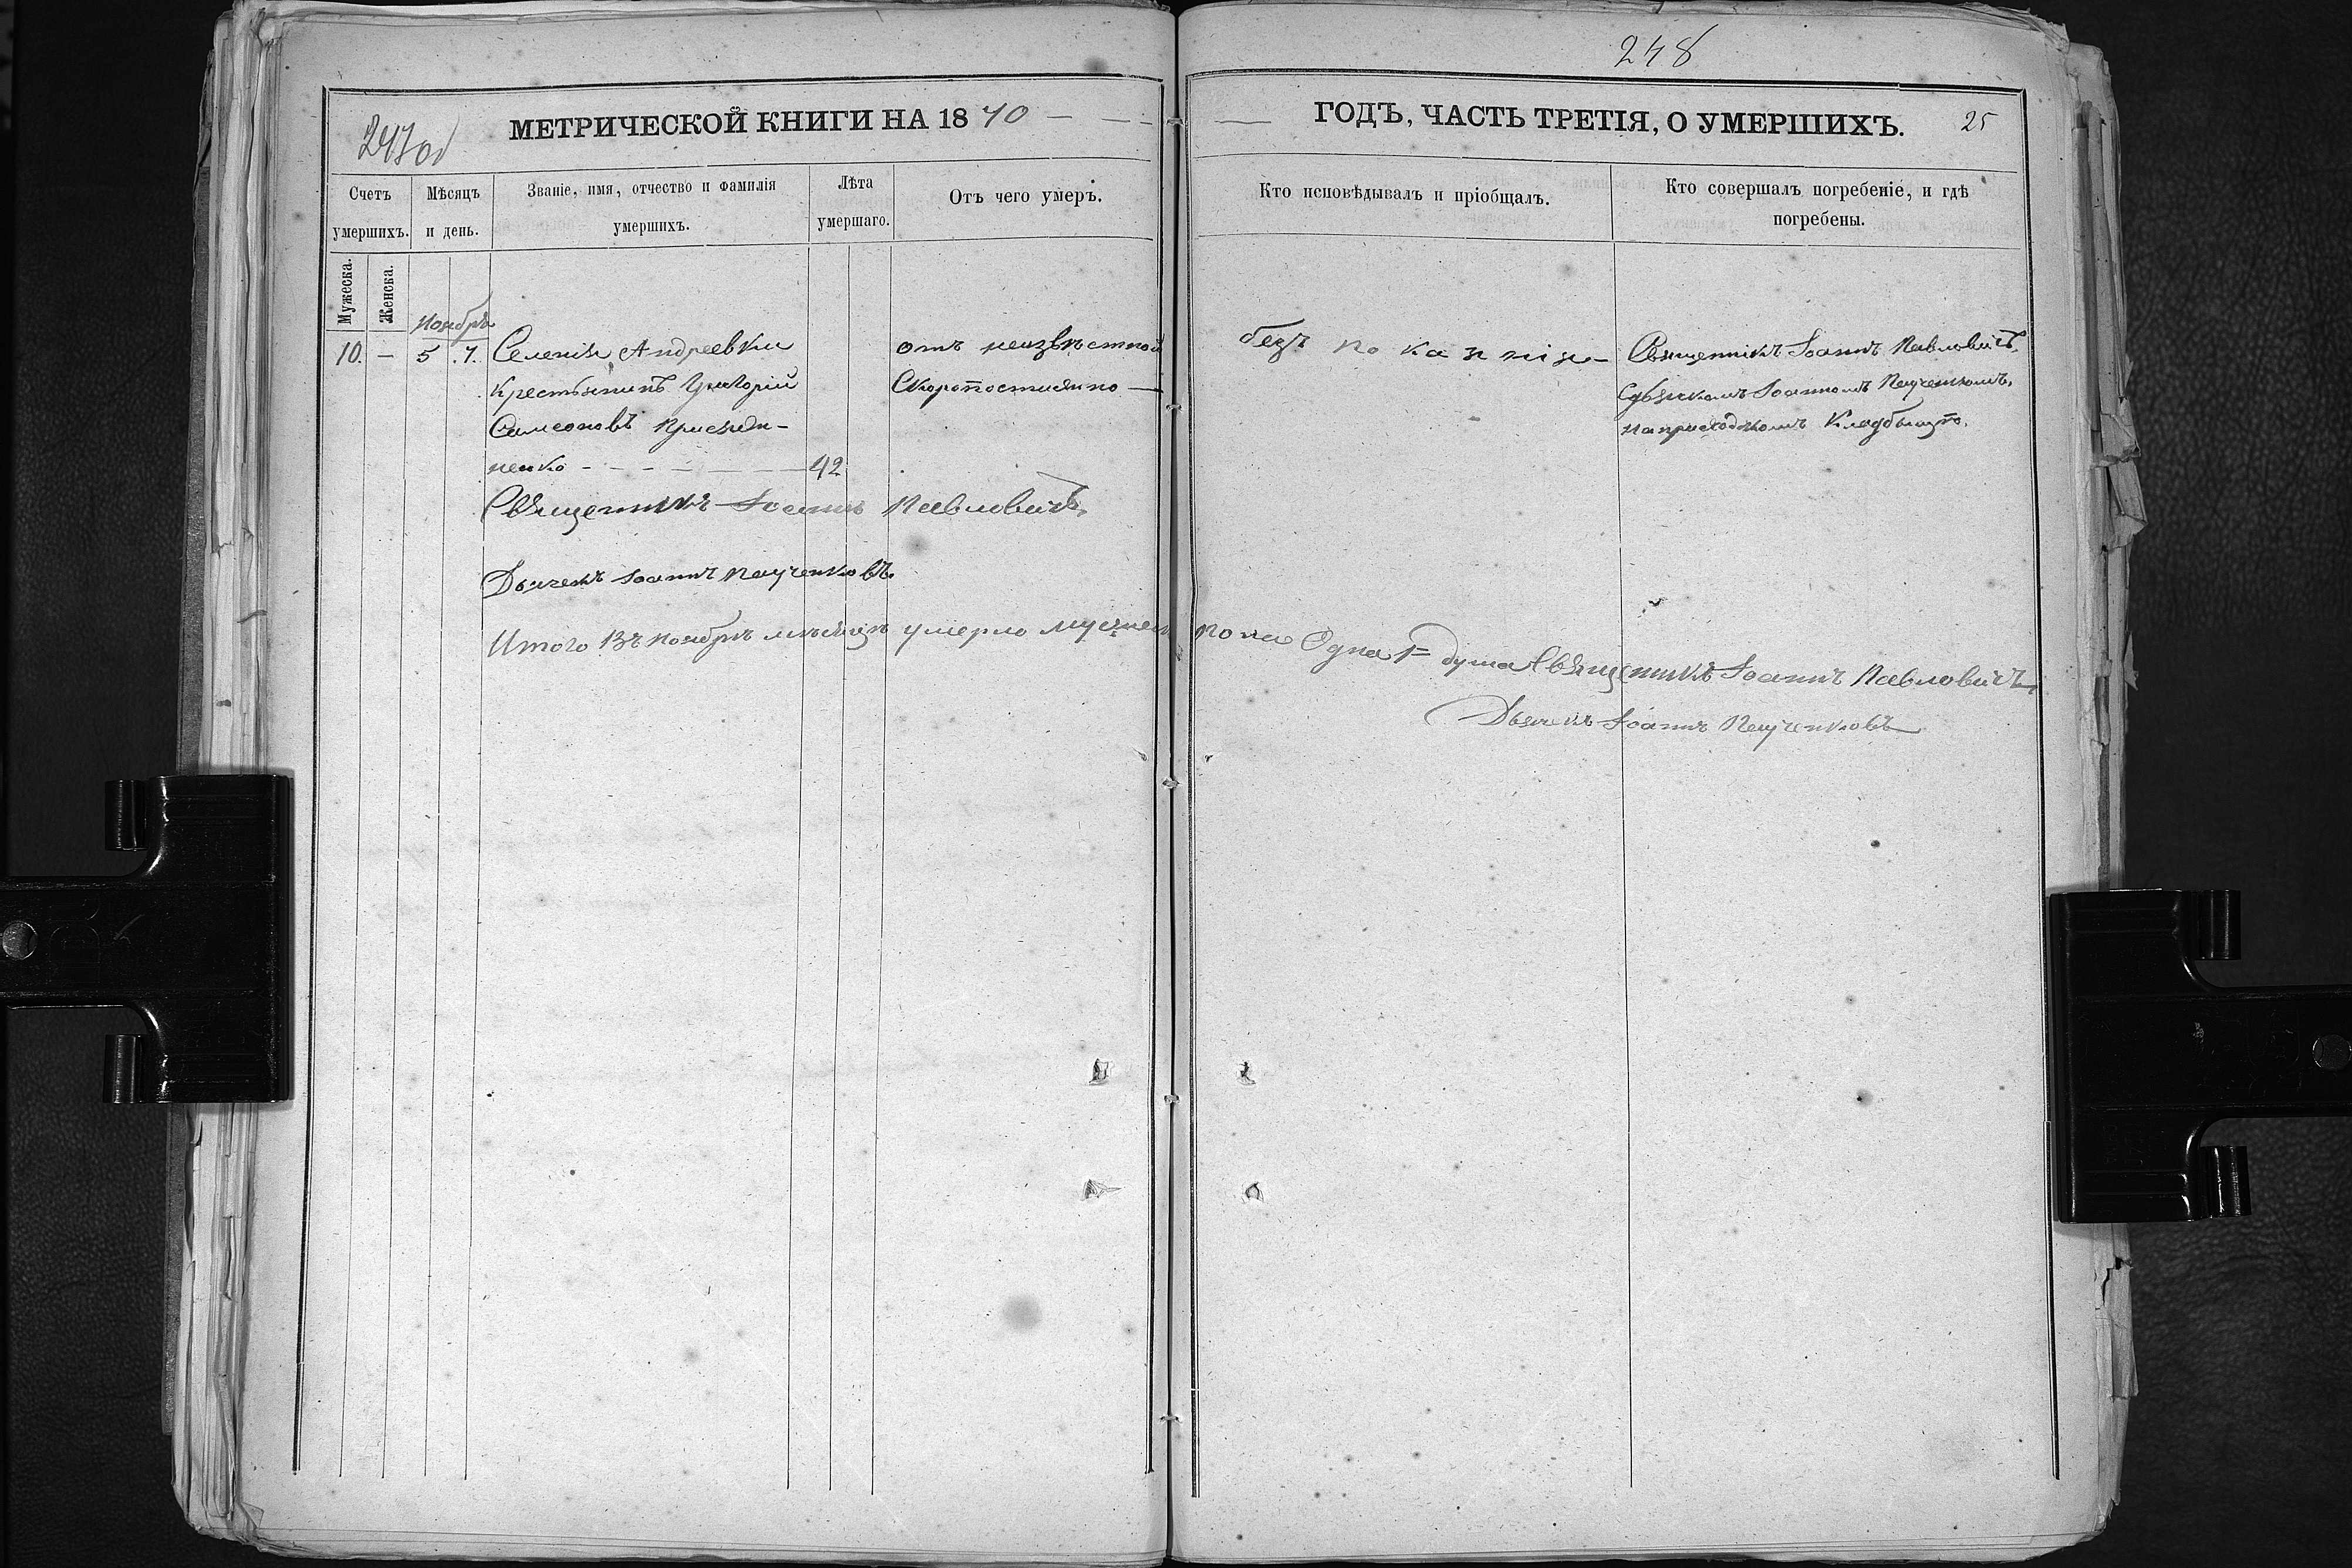 248
247об
МЕТРИЧЕСКОЙ КНИГИ НА 1870
ГОДЪ, ЧАСТЬ ТРЕТІЯ, О УМЕРШИХЪ.
25
Счетъ умершихъ.
Мѣсяцъ и день.
Званіе, имя, отчество и фамилія умершихъ.
Лѣта умершаго.
Отъ чего умеръ.
Кто исповѣдывалъ и пріобщалъ.
Кто совершалъ погребеніе, и гдѣ погребены.
Мужеска.
Женска.
Ноябрь
10. — 5 . 7. Селенія Андреевки
крестьянинъ Григорій
Симеоновъ
ненко - - - 42
отъ неизвѣстной
Скоропостижно —
безъ покаянія
Священникъ Іоаннъ Павловичъ,
Съ дьячкомъ Іоанномъ
на приходскомъ кладбищѣ.
Священникъ Іоаннъ Павловичъ,
Дьячекъ Іоаннъ
Итого въ ноябрѣ мѣсяцѣ умерло мужеска пола Одна 1= душа Священникъ Іоаннъ Павловичъ
Дьячекъ Іоаннъ